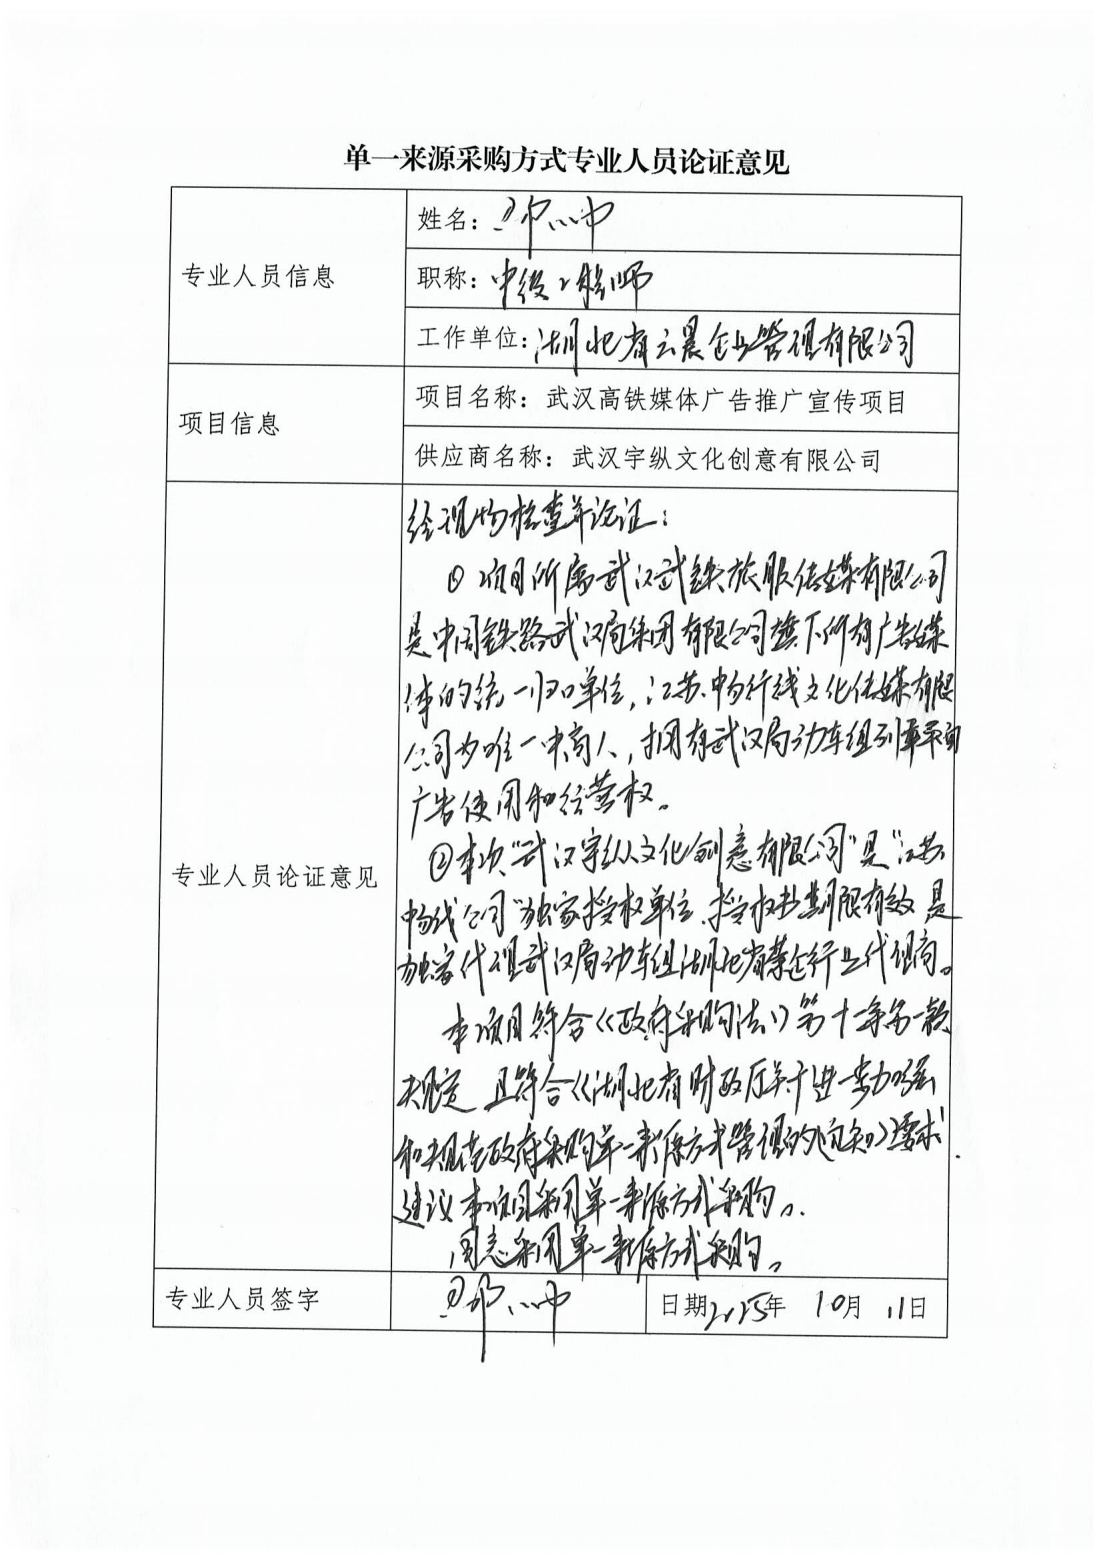 单一来源采购方式专业人员论证意见
专业人员信息
姓名：
职称：中级工程师
工作单位：湖北省云晨企业管理有限公司
项目信息
项目名称：武汉高铁媒体广告推广宣传项目
供应商名称：武汉宇纵文化创意有限公司
专业人员论证意见
经现场检查并论证：
① 项目所属武汉武铁旅服传媒有限公司
是中国铁路武汉局集团有限公司旗下所有广告媒
体的统一归口单位，江苏畅行线文化传媒有限
公司为唯一中商人，拥有武汉局动车组列车平面
广告使用和经营权。
②本次“武汉宇纵文化创意有限公司”是“江苏
畅线公司”独家授权单位，授权书期限有效 是
独家代理武汉局动车组湖北省禁企行业代理商。
本项目符合《政府采购法》第十条第一款
规定 且符合《湖北省财政厅关于进一步加强
和规范政府采购单一来源方式管理的通知》要求.
建议本项目采用单一来源方式采购。
同意采用单一来源方式采购。
专业人员签字
日期2025年 10月 11日